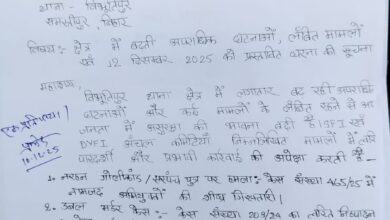 थाना - विभूतिपुर
समस्तीपुर, बिहार
विषय:- क्षेत्र में बढ़ती आपराधिक घटनाओं, लंबित मामलों
एवं 12 दिसम्बर 2025 को प्रस्तावित धरना की सूचना
महाशय,
विभूतिपुर थाना क्षेत्र में लगातार बढ़ रही अपराधिक
घटनाओं और कई मामलों के लंबित रहने से आम
जनता में असुरक्षा की भावना बढ़ी है।
DYFI अंचल कमिटियाँ निम्नलिखित मामलों में
पारदर्शी और प्रभावी कार्रवाई की अपेक्षा करती है -
1. गोलीकांड / सरपंच पुत्र पर हमला:- केस संख्या 465/25 में
नामजद अभियुक्तों की शीघ्र गिरफ्तारी।
2. डबल मर्डर केस :- केस संख्या 209/24 का त्वरित
10.12.25